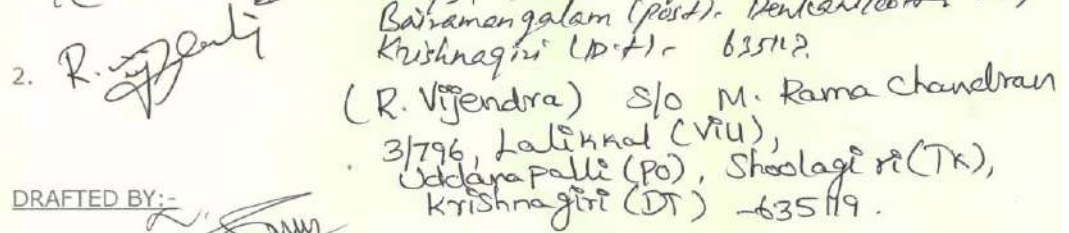 Bairamangalam (post). Denkanikotta
Krishnagiri (D.t)- 635113.
2. R. Vijendra
(R. Vijendra) S/o M. Rama Chandran
3/796, Lalikkal (Vill),
Uddanapalli (PO), Shoolagiri (TK),
Krishnagiri (DT) -635119.
DRAFTED BY:-